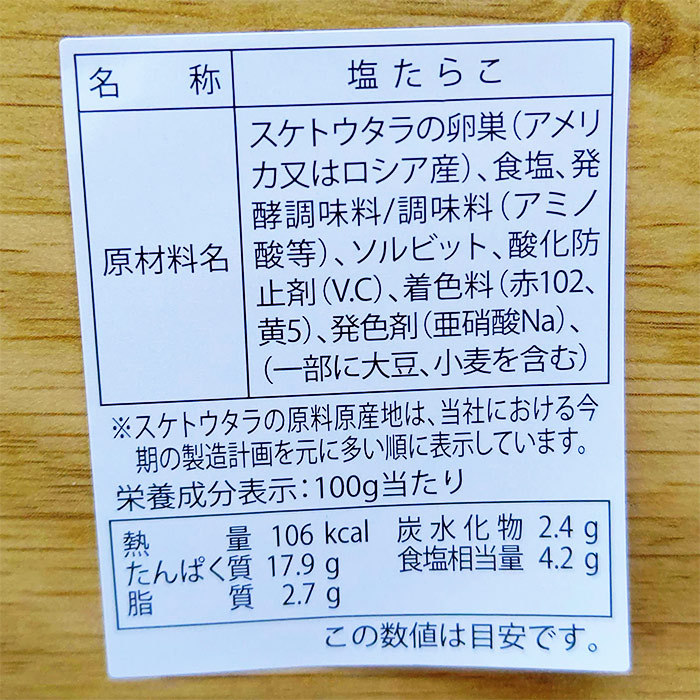 名称 塩たらこ
原材料名
スケトウタラの卵巣(アメリ
カ又はロシア産)、食塩、発
酵調味料/調味料(アミノ
酸等)、ソルビット、酸化防
止剤(V.C)、着色料(赤102、
黄5)、発色剤(亜硝酸Na)、
(一部に大豆、小麦を含む)
※スケトウタラの原料原産地は、当社における今
期の製造計画を元に多い順に表示しています。
栄養成分表示:100g当たり
熱量 106 kcal 炭水化物 2.4 g
たんぱく質 17.9 g 食塩相当量 4.2 g
脂質 2.7 g
この数値は目安です。